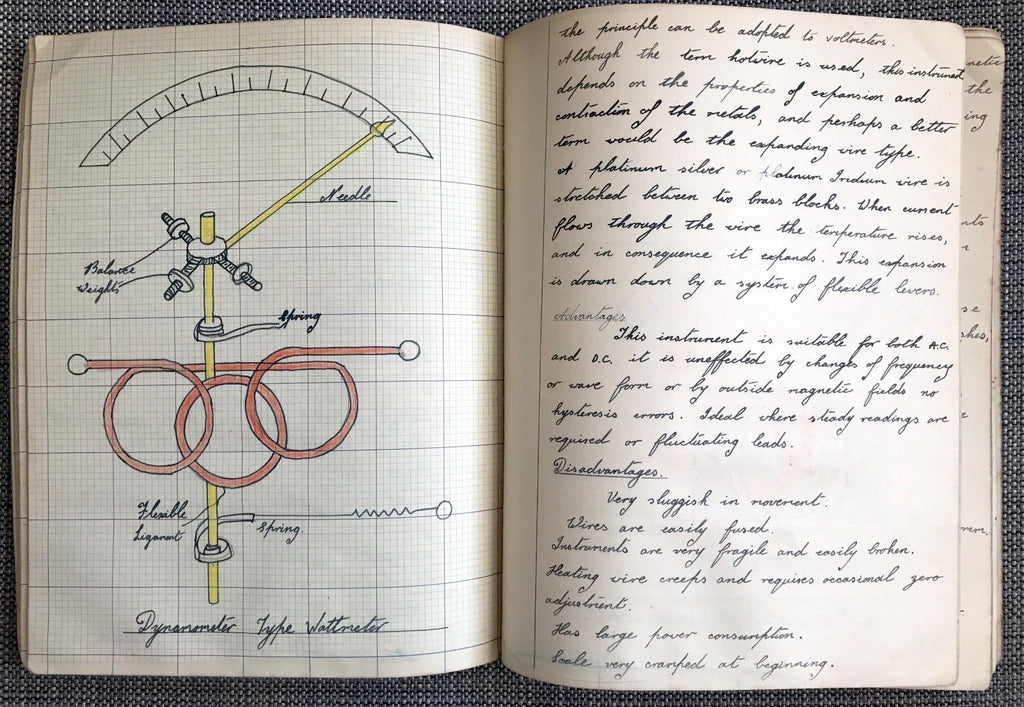 Needle
Balance
Weights
Spring
Flexible
Ligament
Spring.
Dynamometer Type Wattmeter
the principle can be adopted to voltmeters.
Although the term hotwire is used, this instrument
depends on the properties of expansion and
contraction of the metals, and perhaps a better
term would be the expanding wire type.
A platinum silver or platinum Iridium wire is
stretched between two brass blocks. When current
flows through the wire the temperature rises,
and in consequence it expands. This expansion
is drawn down by a system of flexible levers.
Advantages
This instrument is suitable for both A.C.
and D.C. it is uneffected by changes of frequency
or wave form or by outside magnetic fields no
hysteresis errors. Ideal where steady readings are
required or fluctuating leads.
Disadvantages.
Very sluggish in movement.
Wires are easily fused.
Instruments are very fragile and easily broken.
Heating wire creeps and requires occasional zero
adjustment.
Has large power consumption.
Scale very cramped at beginning.
netic
the
ing
nts
se
shes,